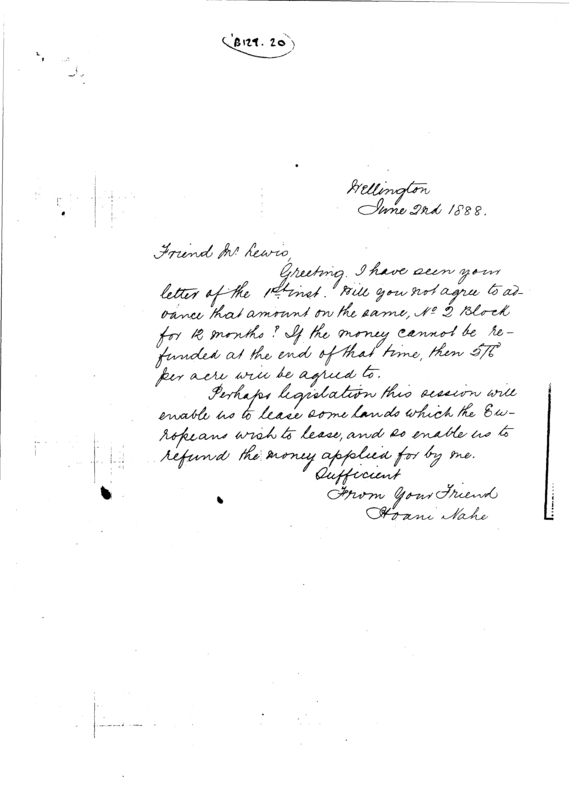 B129. 20
Wellington
June 2nd 1888.
Friend Mr Lewis,
Greeting. I have seen your
letter of the 1st inst. Will you not agree to ad-
vance that amount on the same, No 2 Block
for 12 months? If the money cannot be re-
funded at the end of that time, then 5/6
per acre will be agreed to.
Perhaps legislation this session will
enable us to lease some lands which the Eu-
ropeans wish to lease, and so enable us to
refund the money applied for by me.
Sufficient
From Your Friend
Hoani Nahe